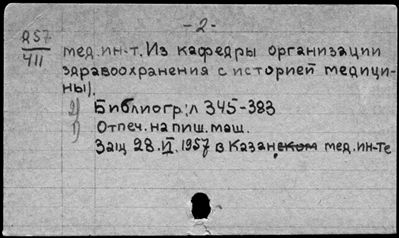 -2-
д57
411
мед.ин-т. Из кафедры организации
здравоохранения с историей медици-
ны).
2) Библиогр: л 345-383
1) Отпеч. на пиш. маш.
Защ 28.VI.1957 в Казанском мед.ин-те